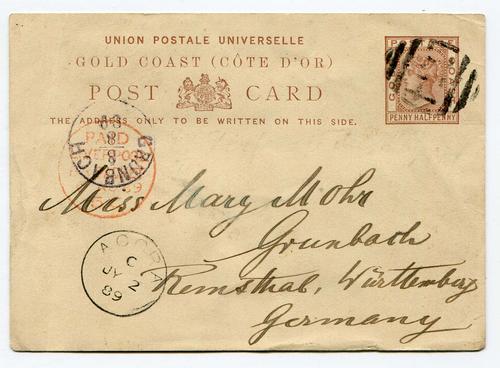 UNION POSTALE UNIVERSELLE
GOLD COAST (CÔTE D'OR)
POST CARD
THE ADDRESS ONLY TO BE WRITTEN ON THIS SIDE.
PENNY HALFPENNY
PAID
LIVERPOOL
GRUNBACH
Miss Mary Mohr
Grunbach
Remsthal, Württemberg
Germany
ACCRA
C
JY 2
89